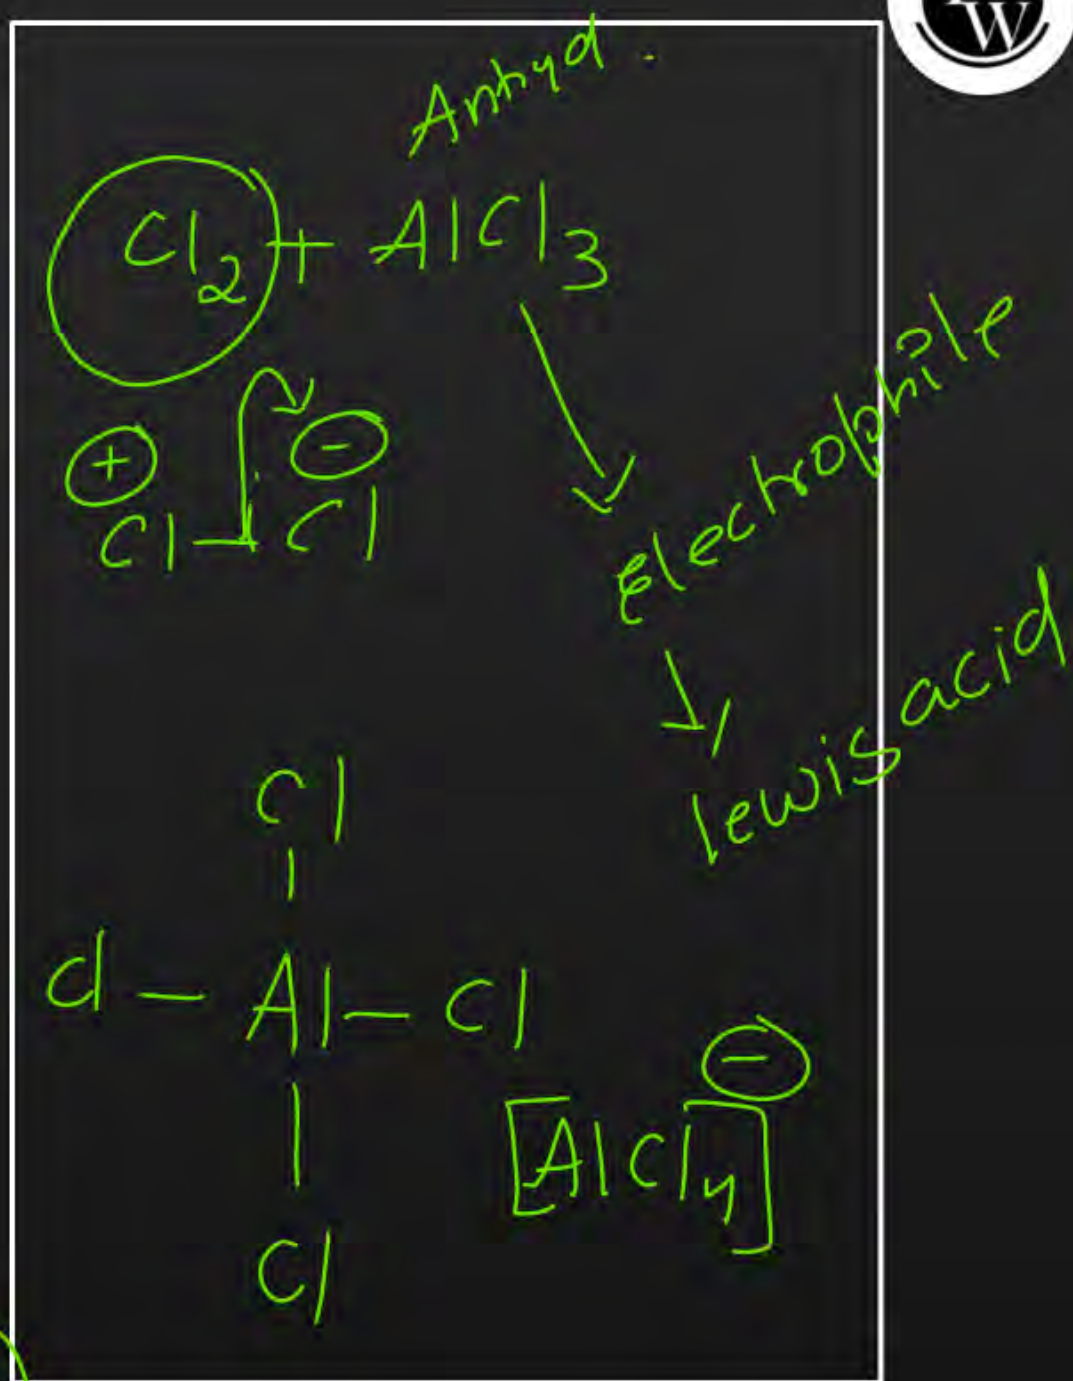 W
Anhyd.
Cl2 + AlCl3
+ -
Cl - Cl
electrophile
lewis acid
Cl
Cl - Al - Cl
-
[AlCl4]
Cl